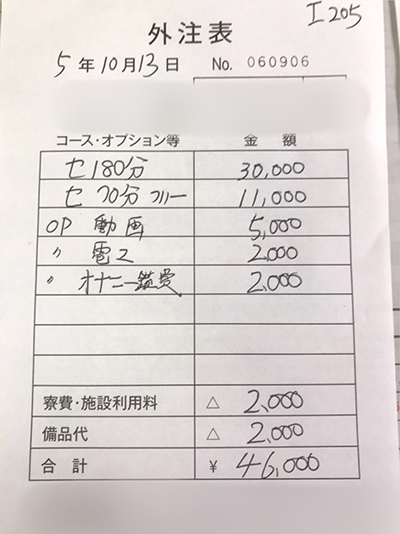 I205
外注表
5年10月13日 No. 060906
コース・オプション等 金額
セ180分 30,000
セ70分 フリー 11,000
OP 動画 5,000
〃 電マ 2,000
〃 オナニー鑑賞 2,000
寮費・施設利用料 △ 2,000
備品代 △ 2,000
合計 ¥ 46,000